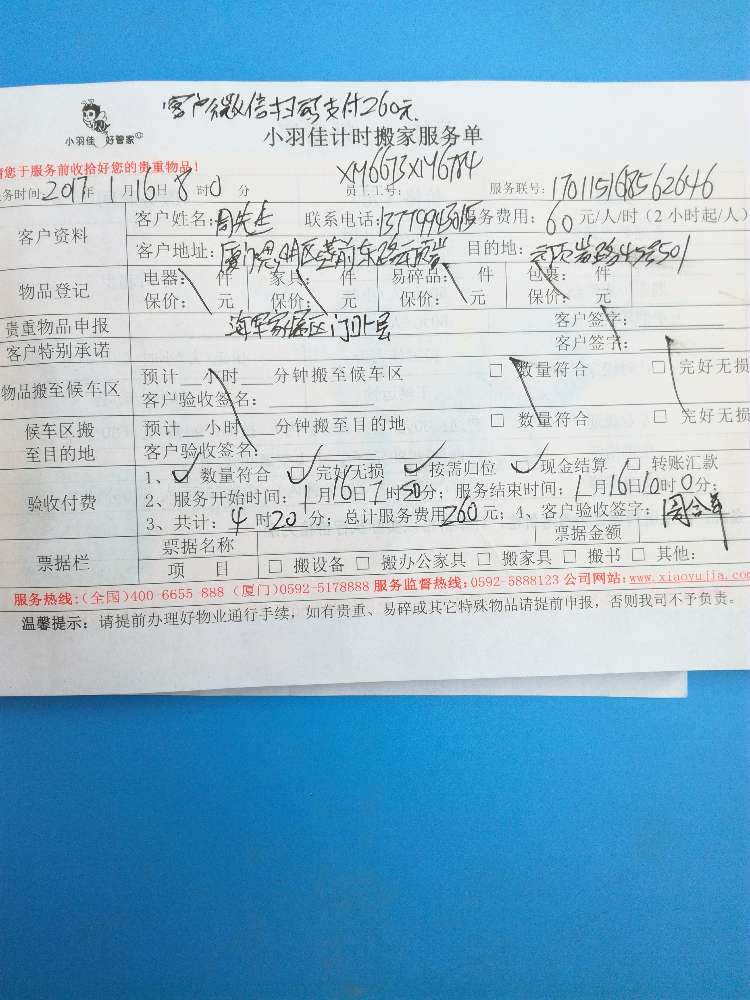 客户微信扫码支付260元
小羽佳 好管家
小羽佳计时搬家服务单
请您于服务前收拾好您的贵重物品!
XM6673XM6784
务时间:2017年1月16日8时0分 员工工号: 服务联号:170115168562646
客户资料 客户姓名:周先生 联系电话: 服务费用:60元/人/时(2小时起/人)
客户地址:厦门思明区莲前东路 目的地: 501
物品登记 电器: 件 家具: 件 易碎品: 件 包裹: 件
保价: 元 保价: 元 保价: 元 保价: 元
贵重物品申报 客户签字:
客户特别承诺 客户签字:
物品搬至候车区 预计__小时__分钟搬至候车区 □ 数量符合 □ 完好无损
客户验收签名:
候车区搬至目的地 预计__小时__分钟搬至目的地 □ 数量符合 □ 完好无损
客户验收签名:
验收付费 1、☑ 数量符合 ☑ 完好无损 ☑ 按需归位 ☑ 现金结算 □ 转账汇款
2、服务开始时间:1月16日7时50分;服务结束时间:1月16日10时0分;
3、共计:4时20分;总计服务费用260元;4、客户验收签字:
票据栏 票据名称 票据金额
项 目 □ 搬设备 □ 搬办公家具 □ 搬家具 □ 搬书 □ 其他:
服务热线:(全国)400-6655 888 (厦门)0592-5178888 服务监督热线:0592-5888123 公司网站:www.xiaoyujia.com
温馨提示:请提前办理好物业通行手续,如有贵重、易碎或其它特殊物品请提前申报,否则我司不予负责。